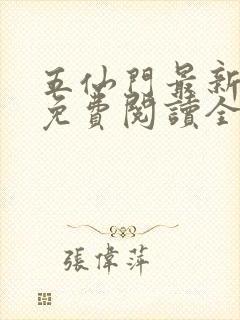 五仙門最新
免費閱讀全
張偉萍